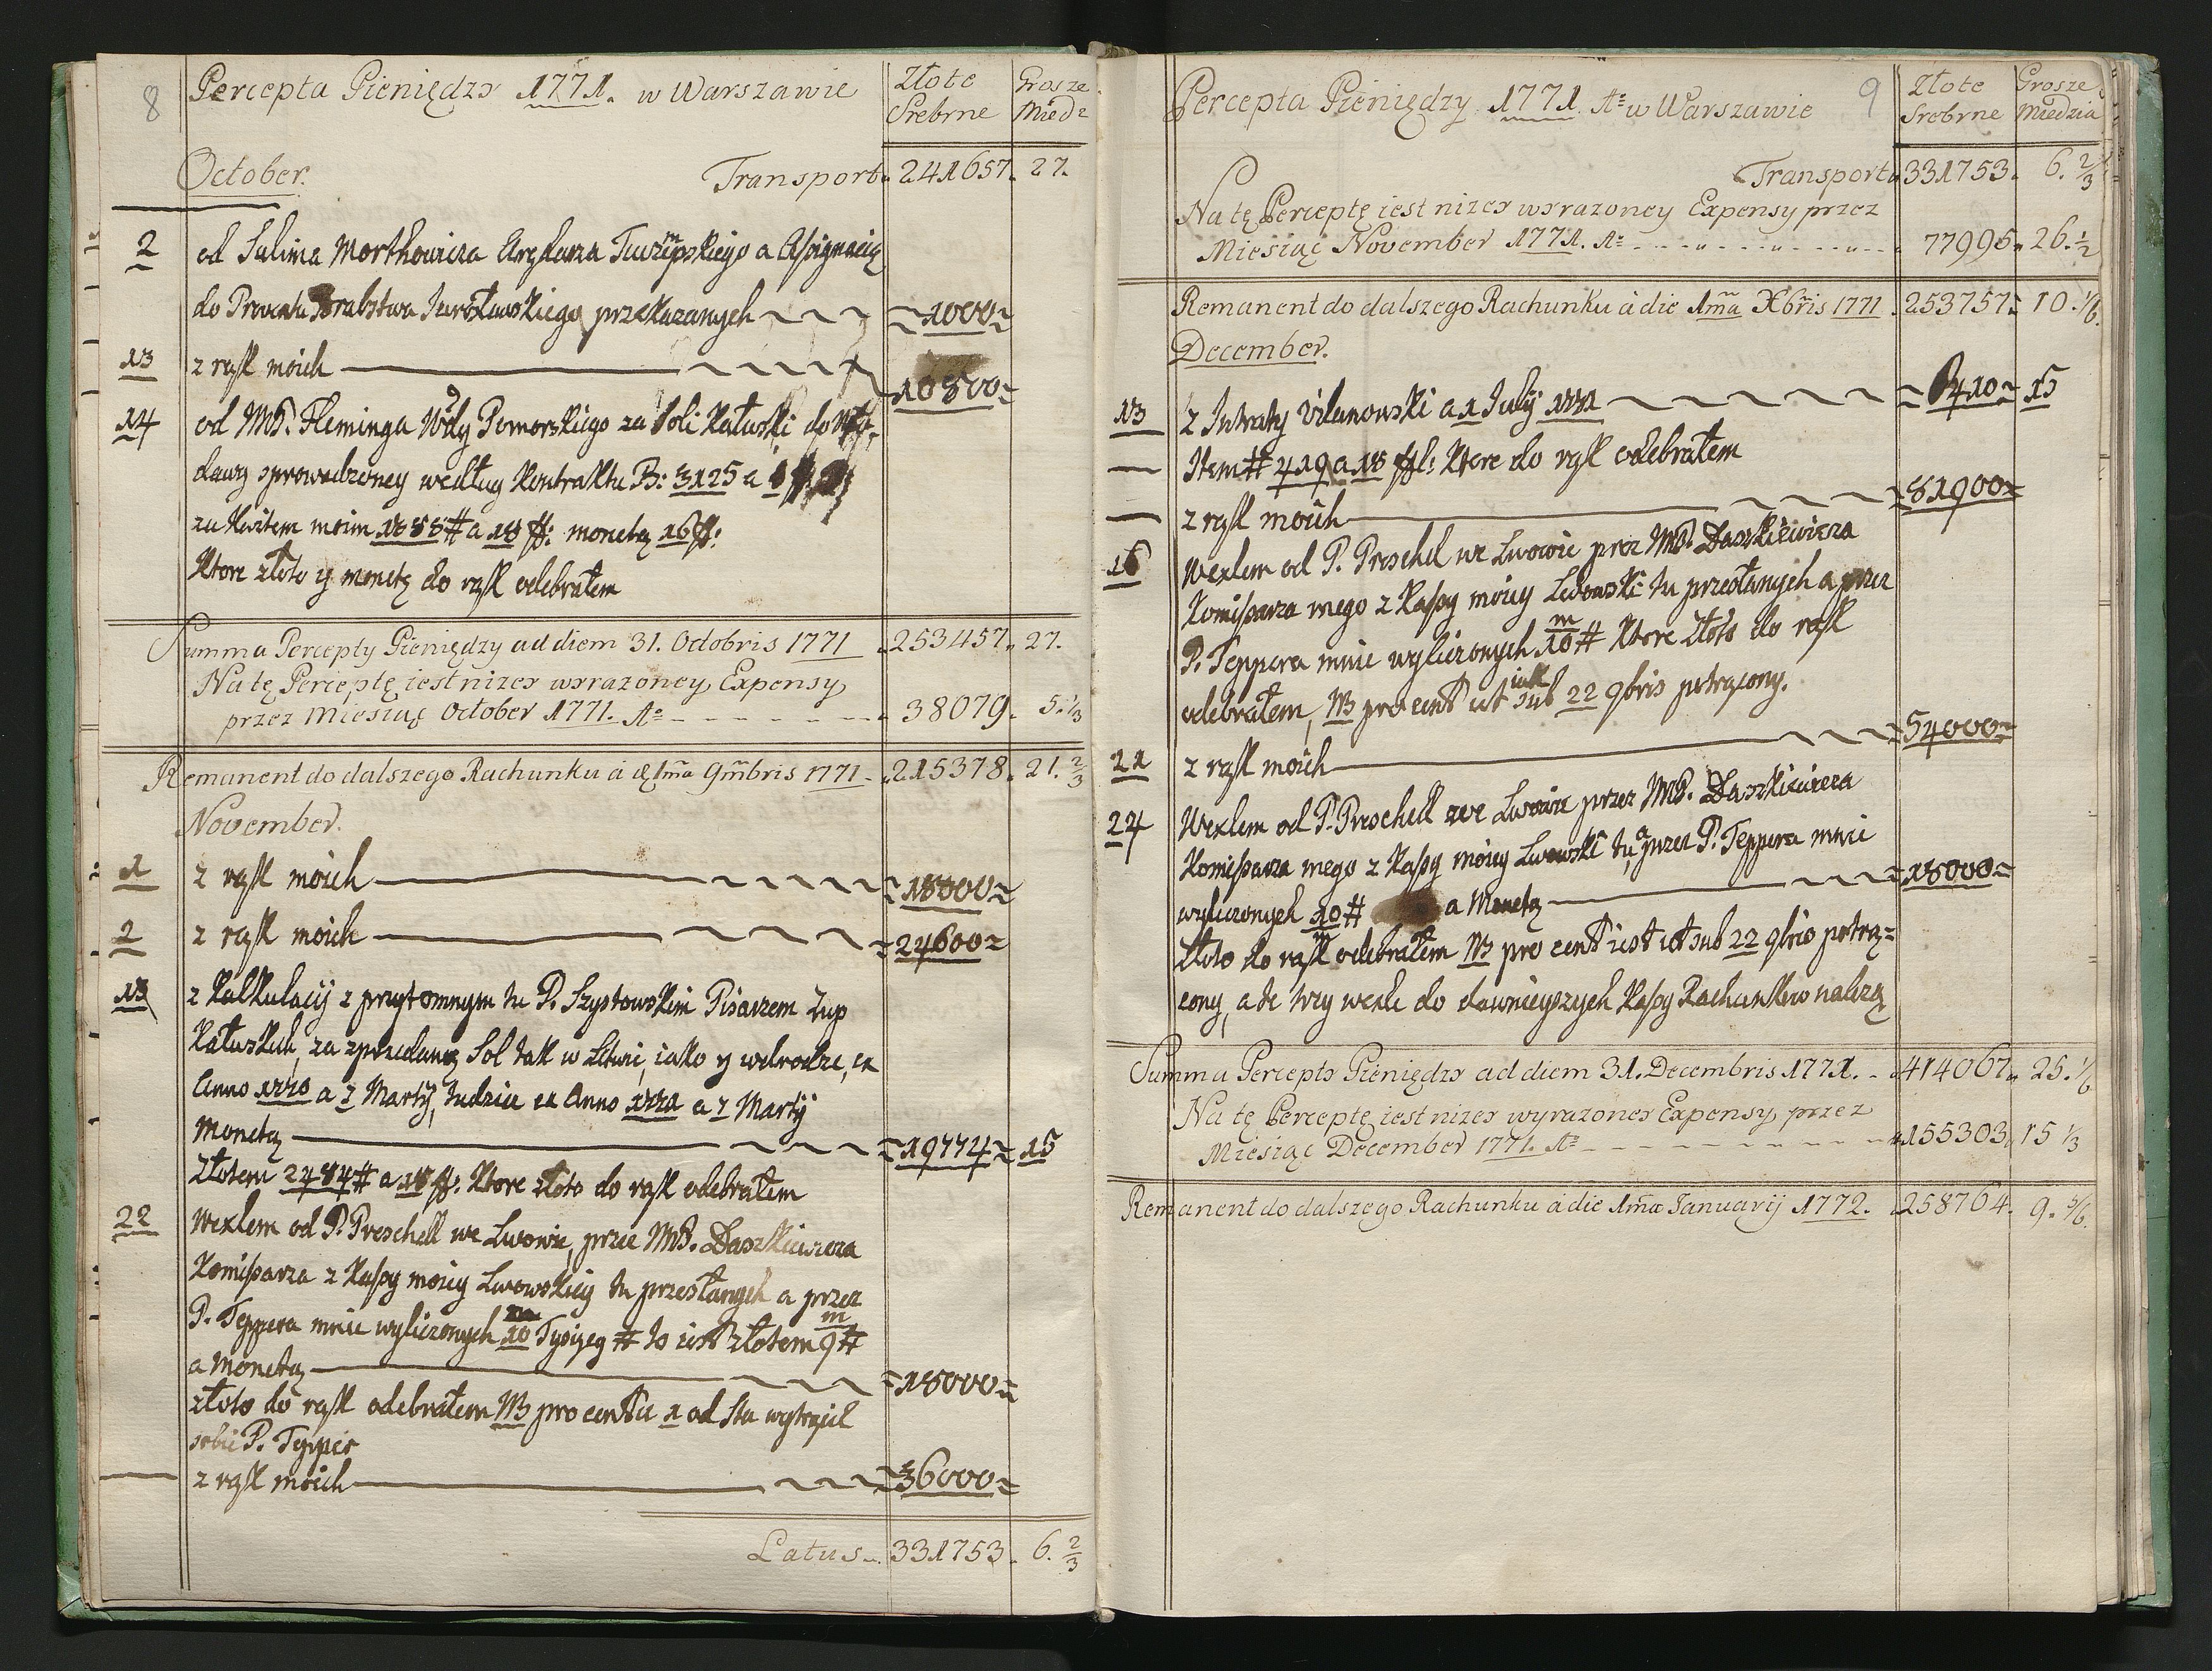 8 Percepta Pieniędzy 1771. w Warszawie Złote Srebrne Grosze Miedz
October. Transport. 241657. 27.
2 od Salima Morthowicza Arędarza a Assignacię
do Prowentu Hrabstwa Jarosławskiego przekazanych 1000
13 z rąk moich 10800
14 od MP. Fleminga Wdy Pomorskiego za Soli Kałuski do
dawy sprowadzoney według Kontraktu B: 3125 a
za Kwitem moim 1888# a 18 ff: monetą 16 ff:
Ktore złoto y monetę do rąk odebrałem
Summa Percepty Pieniędzy ad diem 31. Octobris 1771 253457. 27.
Na tę Perceptę iest nizey wyrazoney Expensy
przez Miesiąc October 1771. Ao 38079. 5. 1/3
Remanent do dalszego Rachunku à d. 1ma 9mbris 1771 215378. 21. 2/3
November.
1 z rąk moich 18000
2 z rąk moich 24600
13 z Kalkulacij z przytomnym tu P. Szystowskim Pisarzem Zup
Kałuskich, za zprzedaną Sol tak w Litwie, iako y wdrodze, ex
Anno 1770 a 7 Martij, tudziez ex Anno 1771 a 7 Martij
Monetą 19774 15
Złotem 2484# a 18 ff. Ktore złoto do rąk odebrałem
22 Wexlem od P. Preschell we Lwowie, przez MP. Daszkiewicza
Komissarza z Kassy moiey Lwowskiey tu przesłanych a przez
P. Teppera mnie wyliczonych 10 Tysięcy # to iest złotem 9m#
a monetą 18000
złoto do rąk odebrałem NB pro centu 1 od sta wytrącił
sobie P. Tepper
z rąk moich 36000
Latus. 331753. 6. 2/3
Percepta Pieniędzy 1771. Ao w Warszawie 9 Złote Srebrne Grosze Miedzia
Transport 331753. 6. 2/3
Na tę Perceptę iest nizey wyrazoney Expensy przez
Miesiąc November 1771. Ao 77995. 26. 1/2
Remanent do dalszego Rachunku à die 1ma Xbris 1771 253757. 10. 1/6.
December.
13 z Intraty Wilanowski a 1 July 1771 6410 15
Item # 419 a 18 ffl: Ktore do rąk odebrałem
z rąk moich 81900
16 Wexlem od P. Preschel we Lwowie przez MP. Daszkiewicza
Komissarza mego z Kassy moiey Lwowski tu przesłanych a przez
P. Teppera mnie wyliczonych 10m # Ktore złoto do rąk
odebrałem, NB pro cent ut iak sub 22 9bris potrącony.
21 z rąk moich 54000
24 Wexlem od P. Preschell we Lwowie przez MP. Daszkiewicza
Komissarza mego z Kassy moiey Lwowski tu, a przez P. Teppera mnie
wyliczonych 10m # a Monetą 18000
złoto do rąk odebrałem NB pro cent iest ut sub 22 9bris potrą=
cony, a te trzy wexle do dawnieyszych Kassy Rachunkow nalezą
Summa Percepty Pieniędzy ad diem 31. Decembris 1771. 414067. 25. 1/6
Na tę Perceptę iest nizey wyrazoney Expensy, przez
Miesiąc December 1771. Ao 155303. 15 1/3
Remanent do dalszego Rachunku à die 1ma Ianuarij 1772. 258764. 9. 5/6.